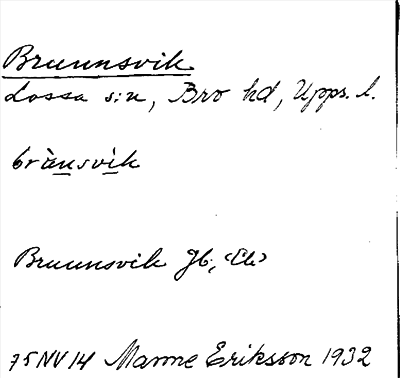 Brunnsvik
Lossa s:n, Bro hd, Upps. l.
brànsvìk
Brunnsvik Jb,
75NV14 Manne Eriksson 1932